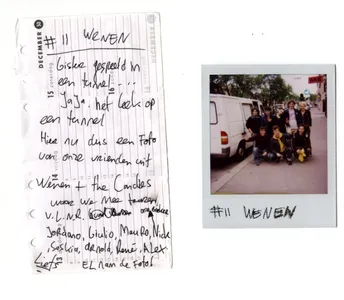 DECEMBER 50
15 zaterdag
16
#11 WENEN
Giske gespeeld in
een tunnel...
Ja Ja. het leek op
een tunnel
Hier nu dus een Foto
van onze vrienden uit
Wenen + the Candies
waar we mee touren
v.l.n.r.
Jordano, Giulio, Mauro, Nick,
Saskia, Arnold, René, Alex
Liefs
EL nam de Foto!
#11 WENEN